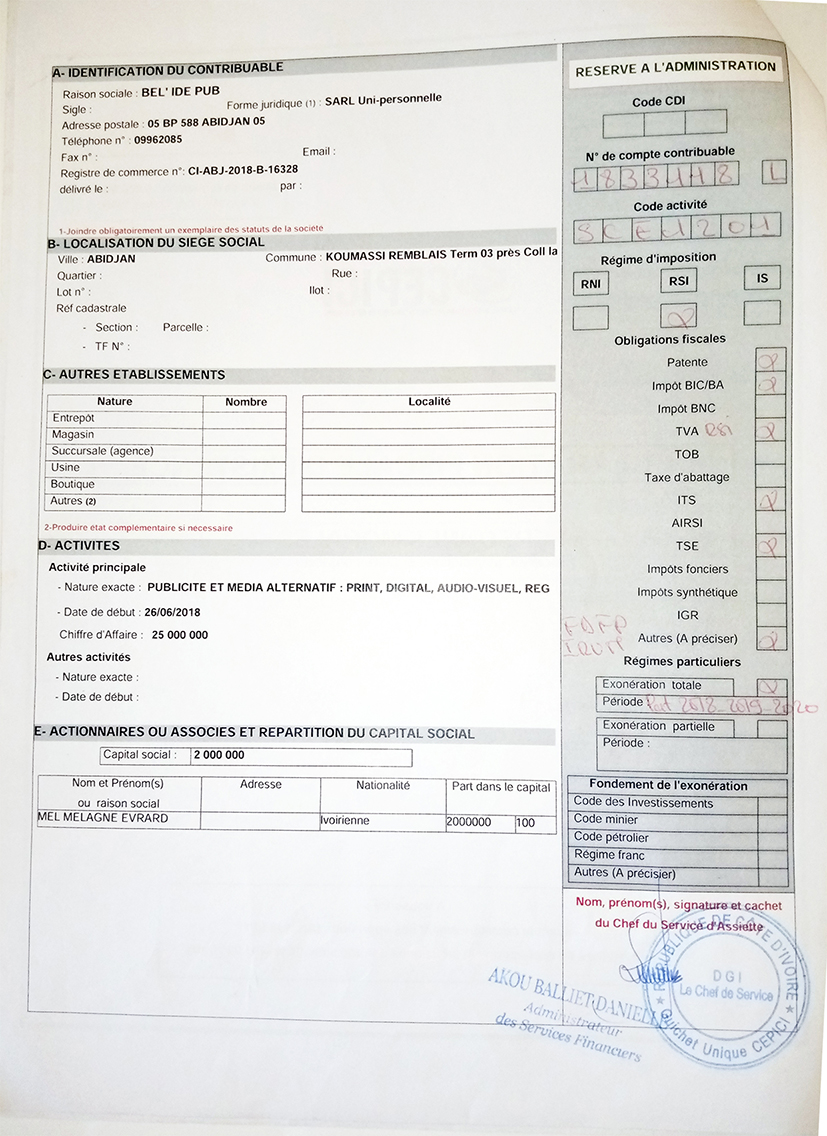 A- IDENTIFICATION DU CONTRIBUABLE
Raison sociale : BEL' IDE PUB
Sigle :
Forme juridique (1) : SARL Uni-personnelle
Adresse postale : 05 BP 588 ABIDJAN 05
Téléphone n° : 09962085
Fax n° :
Email :
Registre de commerce n°: CI-ABJ-2018-B-16328
délivré le :
par :
1-Joindre obligatoirement un exemplaire des statuts de la société
B- LOCALISATION DU SIEGE SOCIAL
Ville : ABIDJAN
Commune : KOUMASSI REMBLAIS Term 03 près Coll la
Quartier :
Rue :
Lot n° :
Ilot :
Réf cadastrale
- Section :
Parcelle :
- TF N° :
C- AUTRES ETABLISSEMENTS
Nature Nombre Localité
Entrepôt
Magasin
Succursale (agence)
Usine
Boutique
Autres (2)
2-Produire état complementaire si necessaire
D- ACTIVITES
Activité principale
- Nature exacte : PUBLICITE ET MEDIA ALTERNATIF : PRINT, DIGITAL, AUDIO-VISUEL, REG
- Date de début : 26/06/2018
Chiffre d'Affaire : 25 000 000
Autres activités
- Nature exacte :
- Date de début :
E- ACTIONNAIRES OU ASSOCIES ET REPARTITION DU CAPITAL SOCIAL
Capital social : 2 000 000
Nom et Prénom(s)
ou raison social
Adresse
Nationalité
Part dans le capital
MEL MELAGNE EVRARD
Ivoirienne
2000000
100
RESERVE A L'ADMINISTRATION
Code CDI
N° de compte contribuable
1833448 L
Code activité
SCE1201
Régime d'imposition
RNI RSI IS
Obligations fiscales
Patente
Impôt BIC/BA
Impôt BNC
TVA RSI
TOB
Taxe d'abattage
ITS
AIRSI
TSE
Impôts fonciers
Impôts synthétique
IGR
FDFP
IRVM
Autres (A préciser)
Régimes particuliers
Exonération totale
Période Pat 2018-2019-2020
Exonération partielle
Période :
Fondement de l'exonération
Code des Investissements
Code minier
Code pétrolier
Régime franc
Autres (A précisier)
Nom, prénom(s), signature et cachet
du Chef du Service d'Assiette
REPUBLIQUE DE CÔTE D'IVOIRE
DGI
Le Chef de Service
Guichet Unique CEPICI
AKOU BALLIET DANIELLE
Administrateur
des Services Financiers